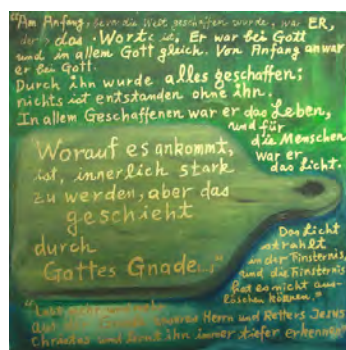 "Am Anfang, bevor die Welt geschaffen wurde, war ER,
der das Wort ist, Er war bei Gott
und in allem Gott gleich. Von Anfang an war
er bei Gott.
Durch ihn wurde alles geschaffen;
nichts ist entstanden ohne ihn.
In allem Geschaffenen war er das Leben,
und für
die Menschen
war er
das Licht.
Worauf es ankommt,
ist, innerlich stark
zu werden, aber das
geschieht
durch
Gottes Gnade...;"
Das Licht
strahlt
in der Finsternis,
und die Finsternis
hat es nicht aus-
löschen können."
"Lebt mehr und mehr
aus der Gnade unseres Herrn und Retters Jesus
Christus und lernt ihn immer tiefer erkennen"